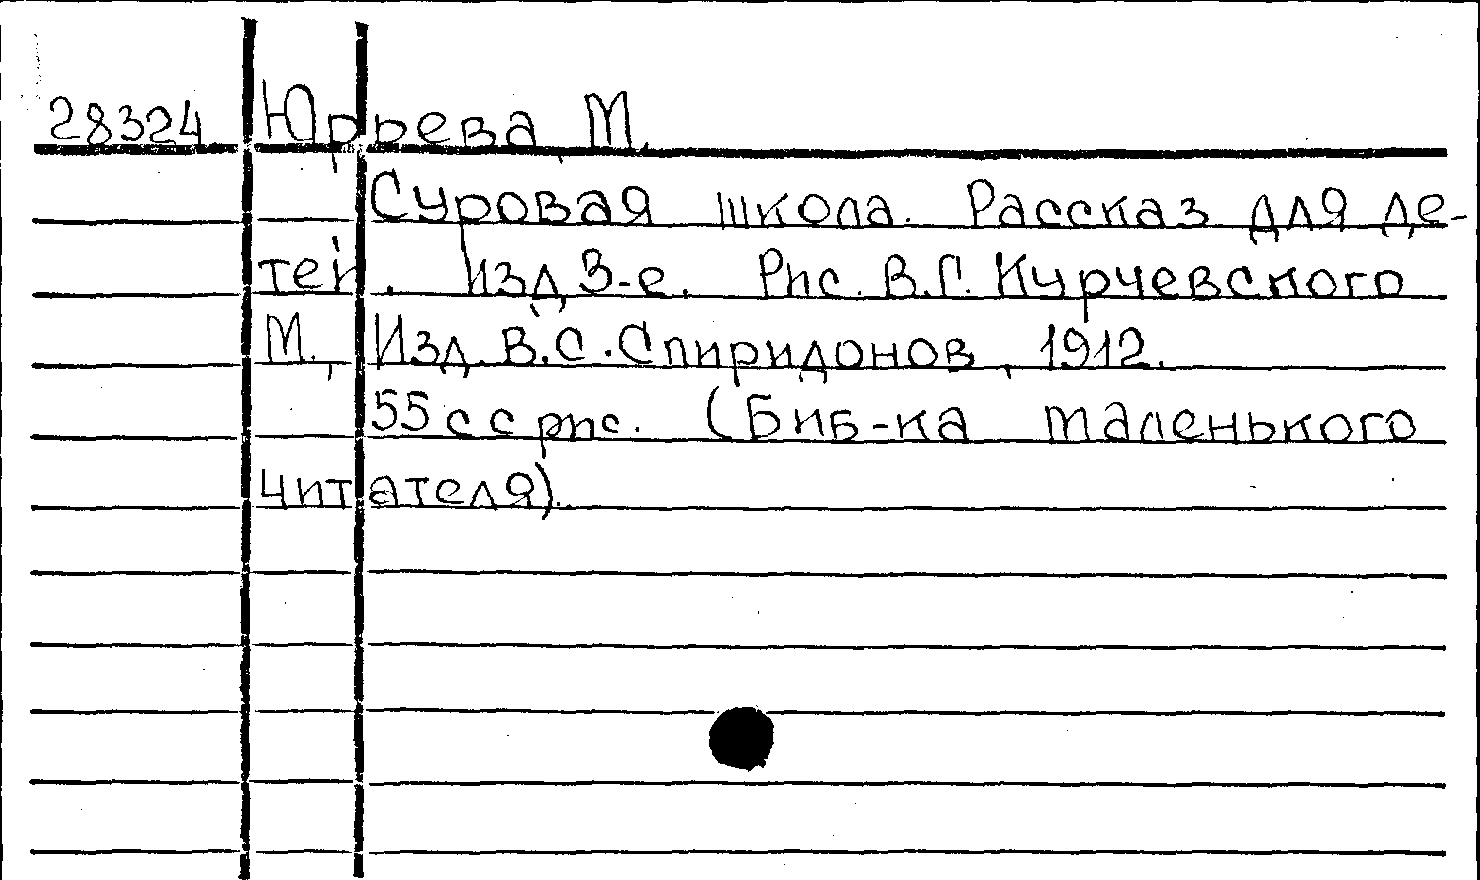 28324 Юрьева, М.
Суровая школа. Рассказ для де-
тей. Изд. 3-е. Рис. В.Г. Курчевского
М., Изд. В.С. Спиридонов, 1912.
55 с с рис. (Биб-ка маленького
читателя).